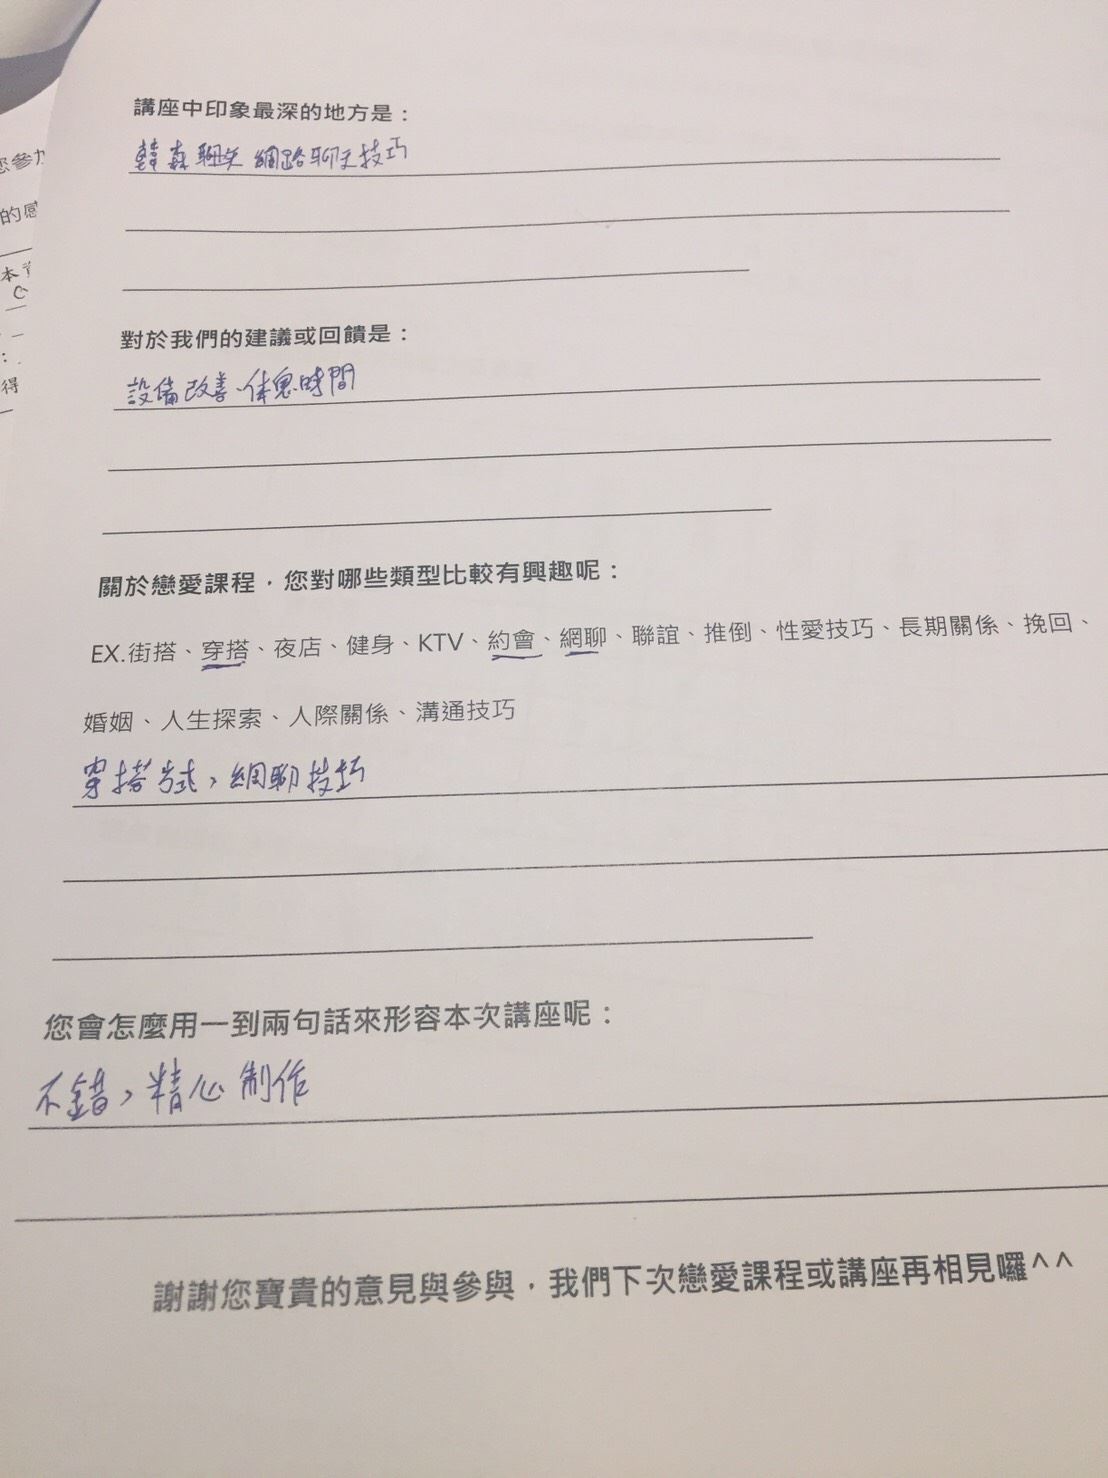 講座中印象最深的地方是：
韓森聊天 網路聊天技巧
對於我們的建議或回饋是：
設備改善、休息時間
關於戀愛課程，您對哪些類型比較有興趣呢：
EX.街搭、穿搭、夜店、健身、KTV、約會、網聊、聯誼、推倒、性愛技巧、長期關係、挽回、
婚姻、人生探索、人際關係、溝通技巧
穿搭方式，網聊技巧
您會怎麼用一到兩句話來形容本次講座呢：
不錯，精心制作
謝謝您寶貴的意見與參與，我們下次戀愛課程或講座再相見囉^^
您參加
的感
本
得